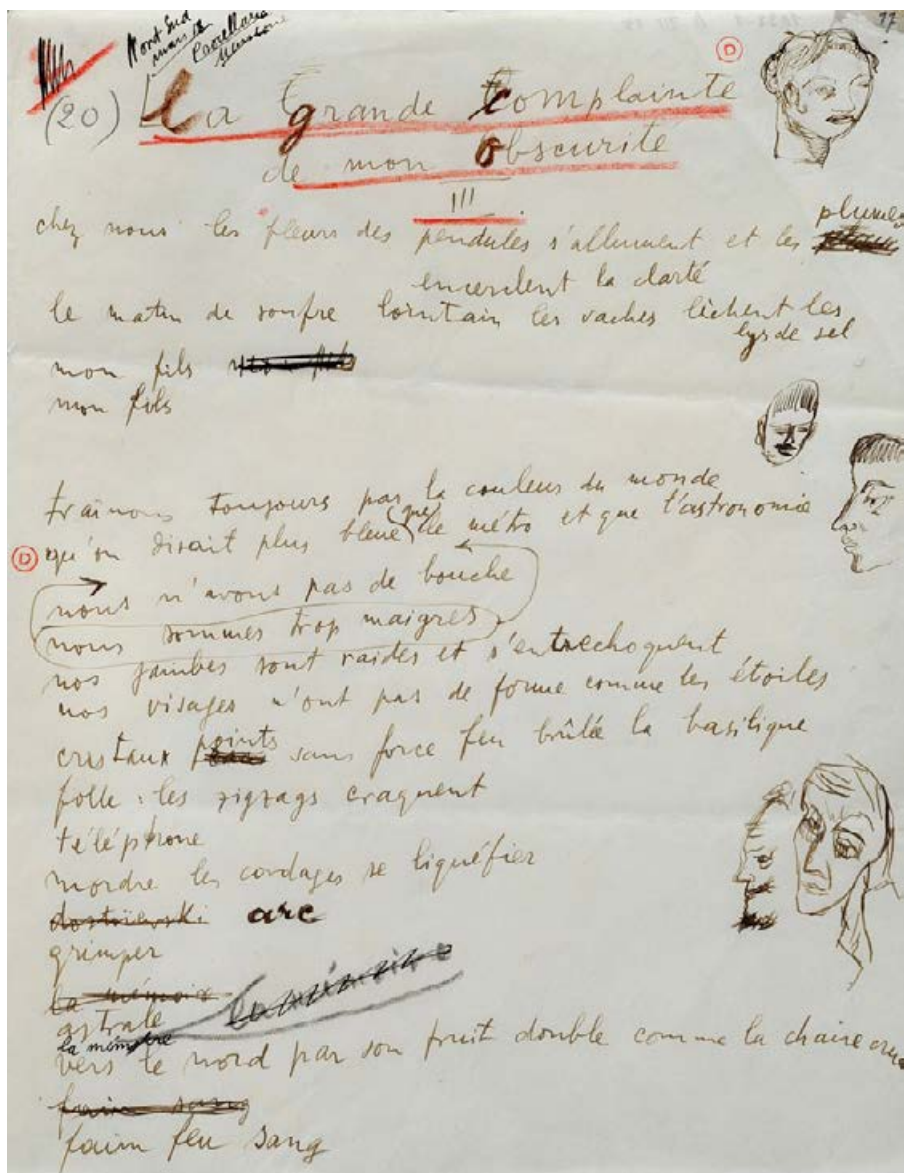 17
Nord Sud
mars 18
(20) La Grande Complainte
de mon Obscurité
III
chez nous les fleurs des pendules s'allument et les plumes
encerclent la clarté
le matin de soufre lointain les vaches lèchent les
lys de sel
mon fils
mon fils
traînons toujours par la couleur du monde
qu'on dirait plus bleue que le métro et que l'astronomie
nous n'avons pas de bouche
nous sommes trop maigres
nos jambes sont raides et s'entrechoquent
nos visages n'ont pas de forme comme les étoiles
cristaux points sans force feu brûlée la basilique
folle : les zigzags craquent
téléphone
mordre les cordages se liquéfier
dostoïewski arc
grimper
la mémoire la mémoire
astrale
la mémoire
vers le nord par son fruit double comme la chaire crue
faim sang
faim feu sang
D
D